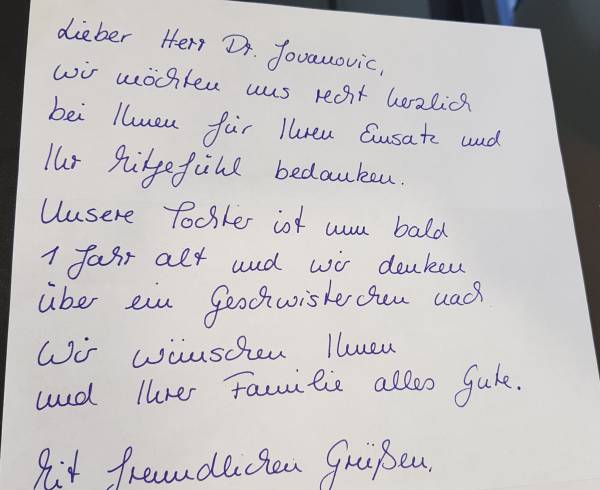 Lieber Herr Dr. Jovanovic,
wir möchten uns recht herzlich
bei Ihnen für Ihren Einsatz und
Ihr Mitgefühl bedanken.
Unsere Tochter ist nun bald
1 Jahr alt und wir denken
über ein Geschwisterchen nach
Wir wünschen Ihnen
und Ihrer Familie alles Gute.
Mit freundlichen Grüßen,